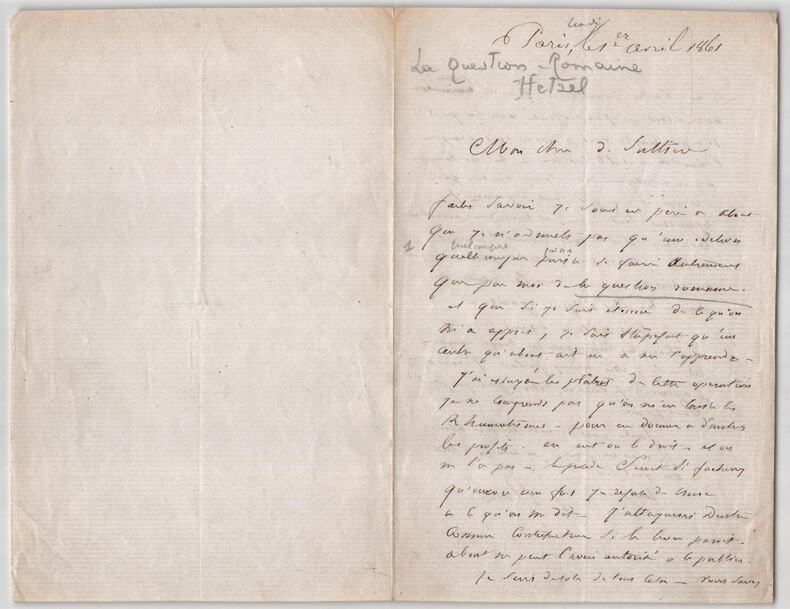 lundi
Paris, le 1er avril 1861
La question Romaine
Hetzel
Mon cher
faites savoir je vous en prie à About
que je n'admets pas qu'une édition
quelconque
quelconque puisse se faire autrement
que par moi de la question romaine.
et que si je suis étonné de ce qu'on
m'a appris, je suis stupéfait qu'un
autre qu'about ait eu à me l'apprendre —
J'ai essuyé les plâtres de cette opération
je ne comprends pas qu'on m'en laisse les
Rhumatismes — pour en donner à d'autres
les profits. on en a le droit — et on
ne l'a pas — le procédé serait si
qu'encore une fois je refuse de croire
à ce qu'on me dit — J'attaquerai Dentu
comme contrefacteur si la
about ne peut l'avoir autorisé à le publier.
Je suis désolé de tout cela — vous savez